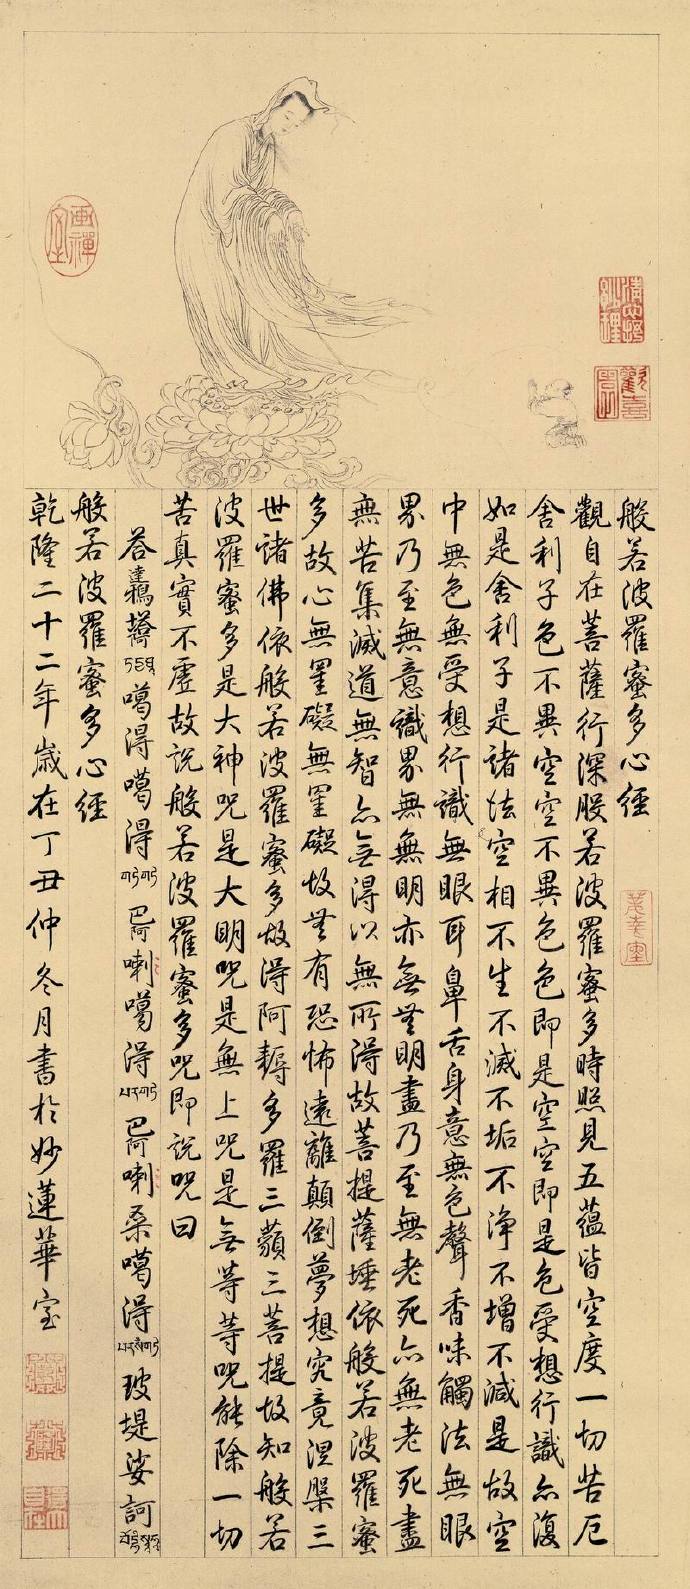 般若波羅蜜多心經
觀自在菩薩行深般若波羅蜜多時照見五蘊皆空度一切苦厄
舍利子色不異空空不異色色即是空空即是色受想行識亦復
如是舍利子是諸法空相不生不滅不垢不淨不增不減是故空
中無色無受想行識無眼耳鼻舌身意無色聲香味觸法無眼
界乃至無意識界無無明亦無無明盡乃至無老死亦無老死盡
無苦集滅道無智亦無得以無所得故菩提薩埵依般若波羅蜜
多故心無罣礙無罣礙故無有恐怖遠離顛倒夢想究竟涅槃三
世諸佛依般若波羅蜜多故得阿耨多羅三藐三菩提故知般若
波羅蜜多是大神咒是大明咒是無上咒是無等等咒能除一切
苦真實不虛故說般若波羅蜜多咒即說咒曰
達鴉塔噶得噶得巴阿喇噶得巴阿喇桑噶得玻堤娑訶
般若波羅蜜多心經
乾隆二十二年歲在丁丑仲冬月書於妙蓮華室
畫禪室